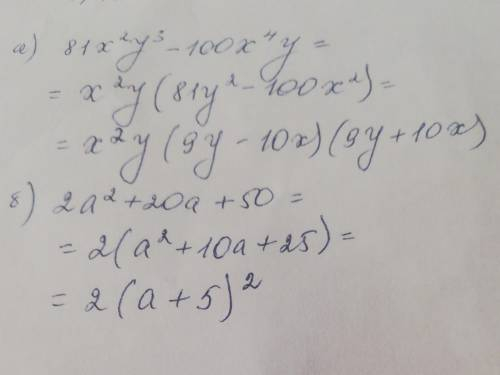 а) 81x²y³ - 100x⁴y =
= x²y (81y² - 100x²) =
= x²y (9y - 10x) (9y + 10x)
б) 2a² + 20a + 50 =
= 2(a² + 10a + 25) =
= 2 (a + 5)²